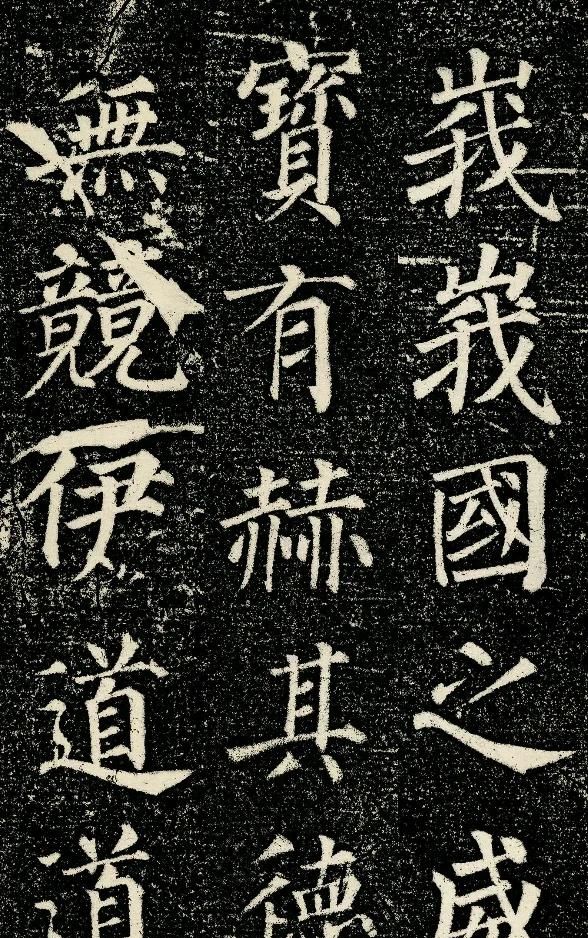 峩峩國之
寶有赫其德
無競伊道道